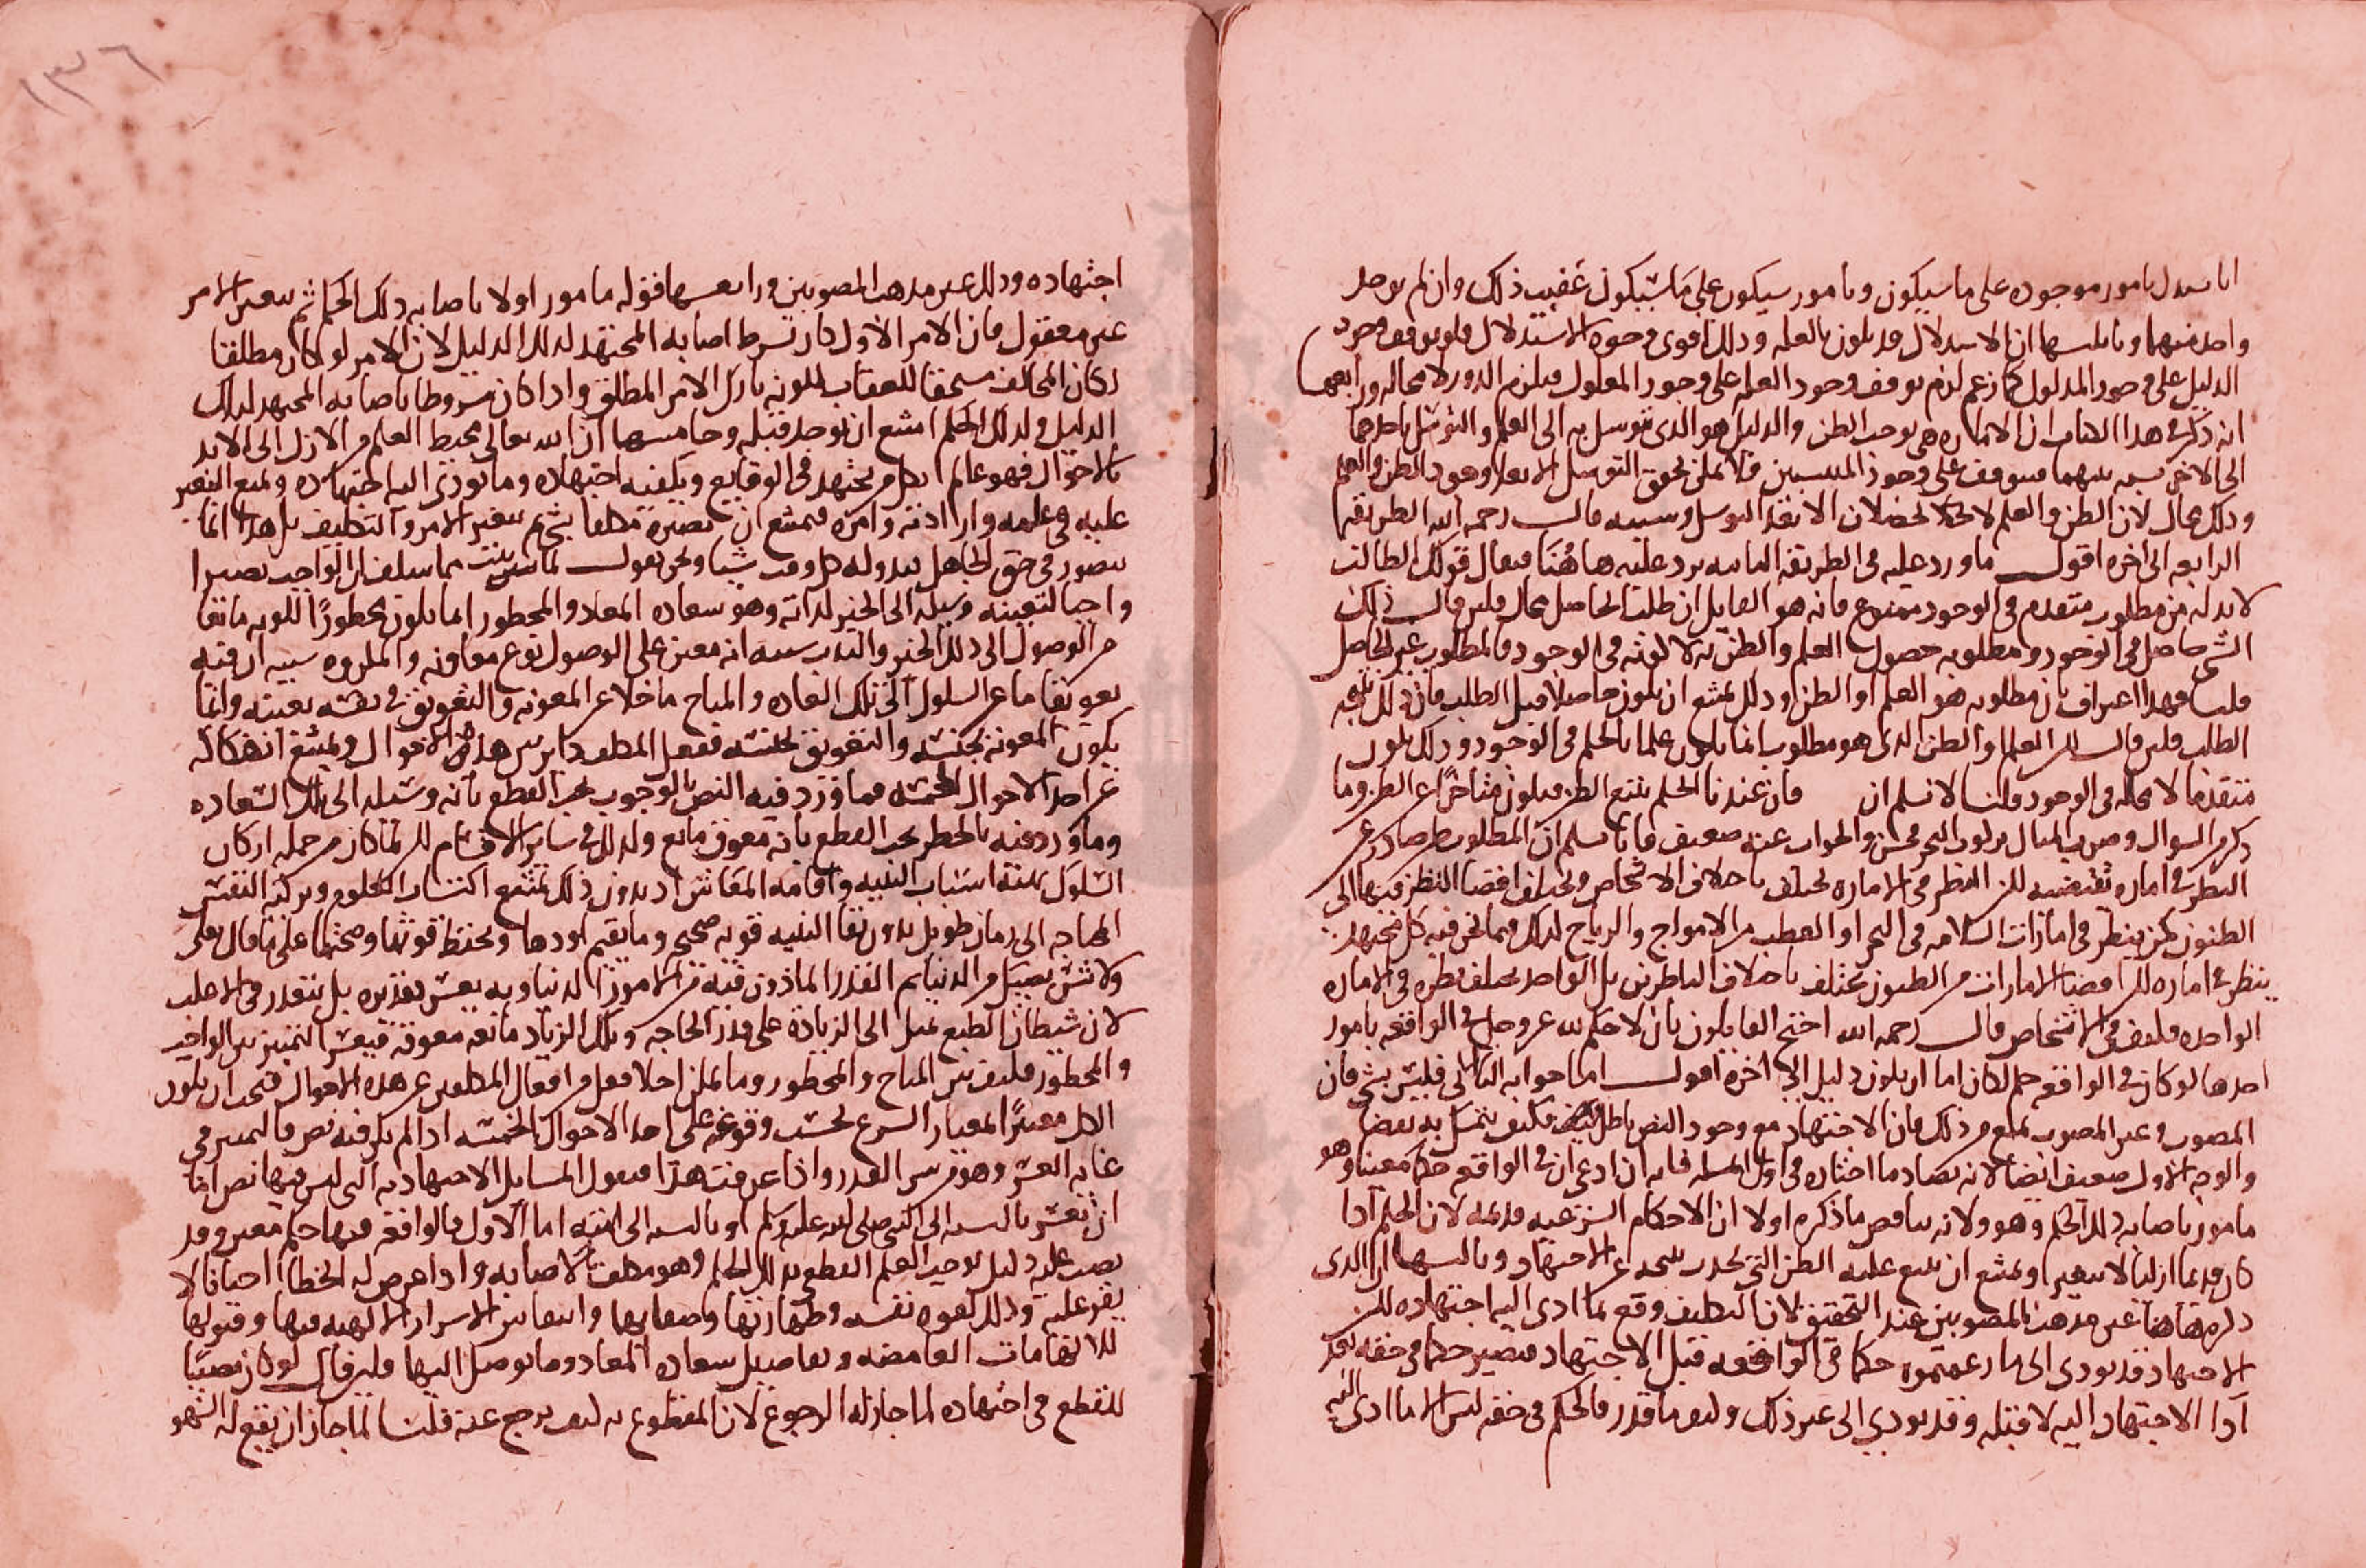 انا نستدل بامور موجوده على ما سيكون وبامور سيكون على ما سيكون عقيب ذلك وان لم يوجد
واحد منهما وثالثها ان الاستدلال قد يكون بالعله وذلك اقوى وجوه الاستدلال فلو توقف وجود
الدليل على وجود المدلول كما زعم لزم توقف وجود العله على وجود المعلول فيلزم الدور لا محاله ورابعها
انه ذكر في هذا الكتاب ان الاماره هي توجب الظن والدليل هو الذي يتوسل به الى العلم والتوسل باحدهما
الى الاخر نسبه بينهما فتتوقف على وجود المنتسبين فلا يمكن تحقق التوسل الا بعد وجود الظن والعلم
وذلك محال لان الظن والعلم لا يحصلان الا بعد التوسل وسببه قال رحمه الله الطريقه
الرابعه الى اخره اقول ما ورد عليه في الطريقه الثانيه يرد عليه هاهنا فيقال قولك الطالب
لا بد له من مطلوب متقدم في الوجود ممنوع فانه هو القايل ان طلب الحاصل محال فلين قال ذلك
الشي حاصل في الوجود ومطلوبه حصول العلم والظن به لا كونه في الوجود فالمطلوب غير الحاصل
قلت فهذا اعتراف بان مطلوبه هو العلم او الظن وذلك يمتنع ان يكون حاصلا قبل الطلب فان ذلك نتيجه
الطلب فلين قال لكن العلم او الظن الذي هو مطلوب انما يكون علما بالحكم في الوجود وذلك يكون
متقدما لا محاله في الوجود قلنا لا نسلم ان فان عندنا الحكم يتبع الظن فيكون متاخرا عن الظن وما
ذكر من السوال وضرب المثال بركوب البحر فحسن والجواب عنه ضعيف فانا نسلم ان المطلوب ظن صادر عن
النظر في اماره تقتضيه لكن النظر في الاماره يختلف باختلاف الاشخاص ويختلف افضا النظر فيها الى
الظنون كمن ينظر في امارات السلامه في البحر او العطب من الامواج والرياح لذلك فيما نحن فيه كل مجتهد
ينظر في اماره لكن افضا الامارات من الظنون يختلف باختلاف الناظرين بل الواحد يختلف نظره في الاماره
الواحده فكيف في الاشخاص قال رحمه الله احتج القايلون بان لا حكم لله عز وجل في الواقعه بامور
احدها لو كان في الواقعه حكم لكان اما ان يكون دليل الى اخره اقول اما جوابه الثاني فليس بشي فان
المصوب وغير المصوب يمنع من ذلك فان الاجتهاد مع وجود النص باطل فكيف يتمسك به بعض
والوجه الاول ضعيف ايضا لانه يضاد ما اختاره في اول المسله فانه ان ادعى ان في الواقعه حكما معينا وهو
مامور باصابه ذلك الحكم وهو ولانه يناقض ما ذكره اولا ان الاحكام الشرعيه قديمه لان الحكم اذا
كان قديما ازليا لا يتغير ويمتنع ان يتبع عليه الظن الذي يحدث نتيجه عن الاجتهاد وثالثها ان الذي
ذكره هاهنا غير مذهب المصوبين عند التحقيق لان التكليف وقع بما ادى اليه اجتهاده لكن
الاجتهاد قد يودي الى ما زعمتموه حكما في الواقعه قبل الاجتهاد فيصير حكما في حقه بعد
اذا الاجتهاد اليه لا قبله وقد يودي الى غير ذلك وكيف ما قدر فالحكم في حقه ليس الا ما ادى اليه
١٣٦
اجتهاده وذلك عين مذهب المصوبين ورابعها قوله مامور اولا باصابه ذلك الحكم ثم يتغير الامر
غير معقول فان الامر الاول كان بشرط اصابه المجتهد لذلك الدليل لان الامر لو كان مطلقا
لكان المخالف مستحقا للعقاب لكونه تارك الامر المطلق واذا كان مشروطا باصابه المجتهد لذلك
الدليل ولذلك الحكم امتنع ان يوجد قبله وخامسها ان الله تعالى محيط العلم من الازل الى الابد
بالاحوال فهو عالم بكل مجتهد في الوقايع وبكيفيه اجتهاده وما يودي اليه اجتهاده ويمتنع التغير
عليه في علمه وارادته وامره فيمتنع ان يصيره مكلفا بشي ثم يتغير الامر والتكليف بل هذا انما
يتصور في حق الجاهل يبدو له كل وقت شيا ونحن نقول لما بينت مما سلف ان الواجب يصير
واجبا لتعينه وسيله الى الخير لذاته وهو سعاده المعاد والمحظور انما يكون محظورا لكونه مانعا
من الوصول الى ذلك الخير والندب سببه انه معين على الوصول نوع معاونه والمكروه سببه ان فيه
تعويقا ما عن السلوك الى تلك السعاده والمباح ما خلا عن المعونه والتعويق في نفسه بعينه وانما
يكون المعونه بجنسه والتعويق بجنسه ففعل المكلف داير بين هذه الاحوال ويمتنع انفكاكه
عن احد الاحوال الخمسه فما ورد فيه النص بالوجوب يجب القطع بانه وسيله الى تلك السعاده
وما ورد فيه بالحظر يجب القطع بانه معوق مانع وكذلك في ساير الاقسام لكن لما كان من جمله اركان
السلوك تهيئه اسباب البنيه واقامه المعاش اذ بدون ذلك يمتنع اكتساب العلوم وتزكيه النفس
المحتاجه الى زمان طويل بدون بقا البنيه قويه صحيحه وما يقيم اودها ويحفظ قوتها وصحتها على ما قال تعالى
ولا تنس نصيبك من الدنيا ثم القدر الماذون فيه من الامور الدنياويه يعسر تقديره بل يتعذر في الاغلب
لان شيطان الطبع يميل الى الزياده على قدر الحاجه وتلك الزياده مانعه معوقه فيعسر التمييز بين الواجب
والمحظور فكيف بين المباح والمحظور وما يمكن اخلا فعل من افعال المكلفين عن هذه الاحوال فيجب ان يكون
الكل معيرا لمعيار الشرع بحسب وقوعه على احد الاحوال الخمسه اذا لم يكن فيه نص فالتمييز في
غايه العسر وهو من سر القدر واذا عرفت هذا فنقول المسايل الاجتهاديه التي ليس فيها نص اما
ان تعتبر بالنسبه الى النبي صلى الله عليه وسلم او بالنسبه الى امته اما الاول فالواقعه فيها حكم معين وقد
نصب عليه دليل يوجب العلم القطعي بذلك الحكم وهو مكلف بالاصابه واذا عرض له الخطا احيانا لا
يقر عليه وذلك لقوه نفسه وطهارتها وصفايها وانتقاش الاسرار الالهيه فيها وقبولها
للالهامات الغامضه وتفاصيل سعاده المعاد وما يوصل اليها فلين قال لو كان نصبا
للقطع في اجتهاده لما جاز له الرجوع لان المقطوع به كيف يرجع عنه قلنا لما جاز ان يقع له السهو